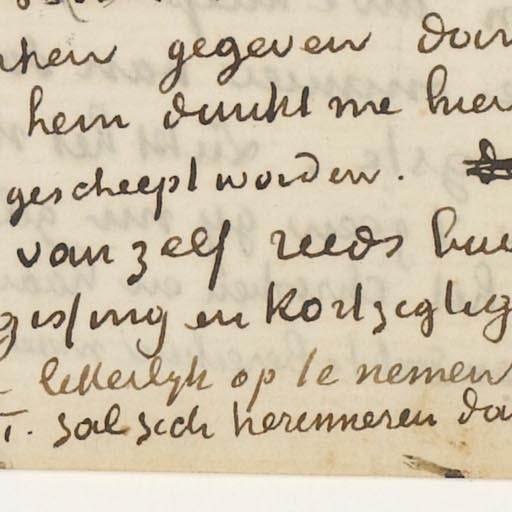 gegeven
hem dunkt me hier
gescheept worden.
van zelf reeds
gissing en kortzigtig
letterlijk op te nemen
T. zal zich herinneren dat